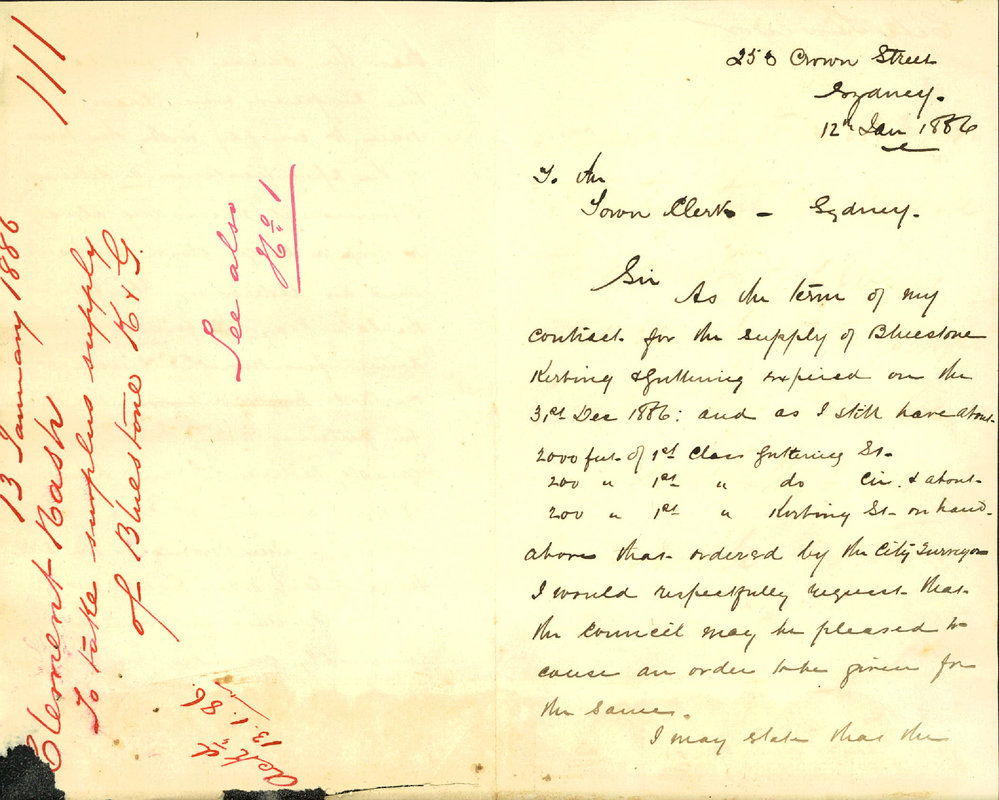 111
13 January 1886
Clement Nash
To take surplus supply
of Bluestone K & G.
See also
No. 1
Ackd
13.1.86.
258 Crown Street
Sydney.
12th Jan 1886
To the
Town Clerk - Sydney.
Sir
As the term of my
contract for the supply of Bluestone
Kerbing & Guttering expired on the
31st Dec 1886: and as I still have about
2000 feet of 1st Class Guttering St.
200 " 1st " do Cir. & about
200 " 1st " Kerbing St. on hand
above that ordered by the City Surveyor
I would respectfully request that
the Council may be pleased to
cause an order to be given for
the same.
I may state that the